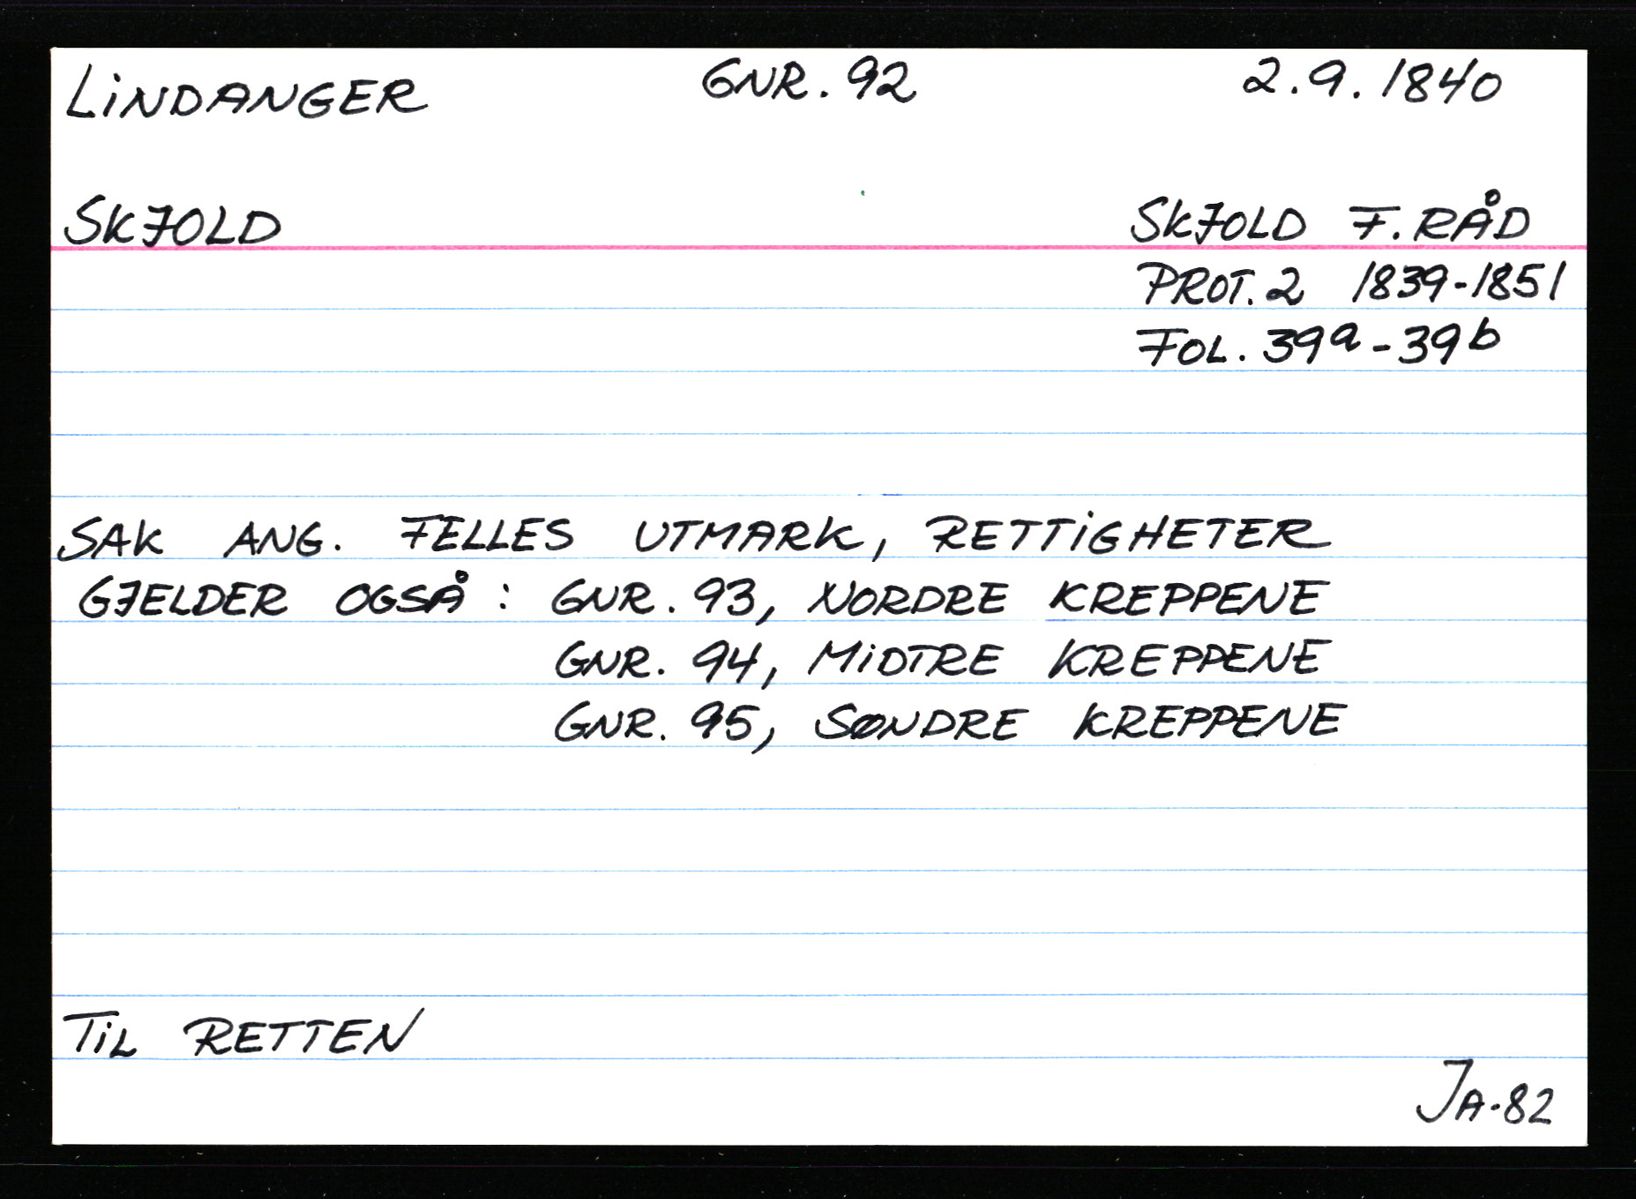 LINDANGER GNR. 92 2.9.1840
SKJOLD SKJOLD F.RÅD
PROT. 2 1839-1851
FOL. 39a-39b
SAK ANG. FELLES UTMARK, RETTIGHETER
GJELDER OGSÅ: GNR. 93, NORDRE KREPPENE
GNR. 94, MIDTRE KREPPENE
GNR. 95, SØNDRE KREPPENE
TIL RETTEN
JA-82